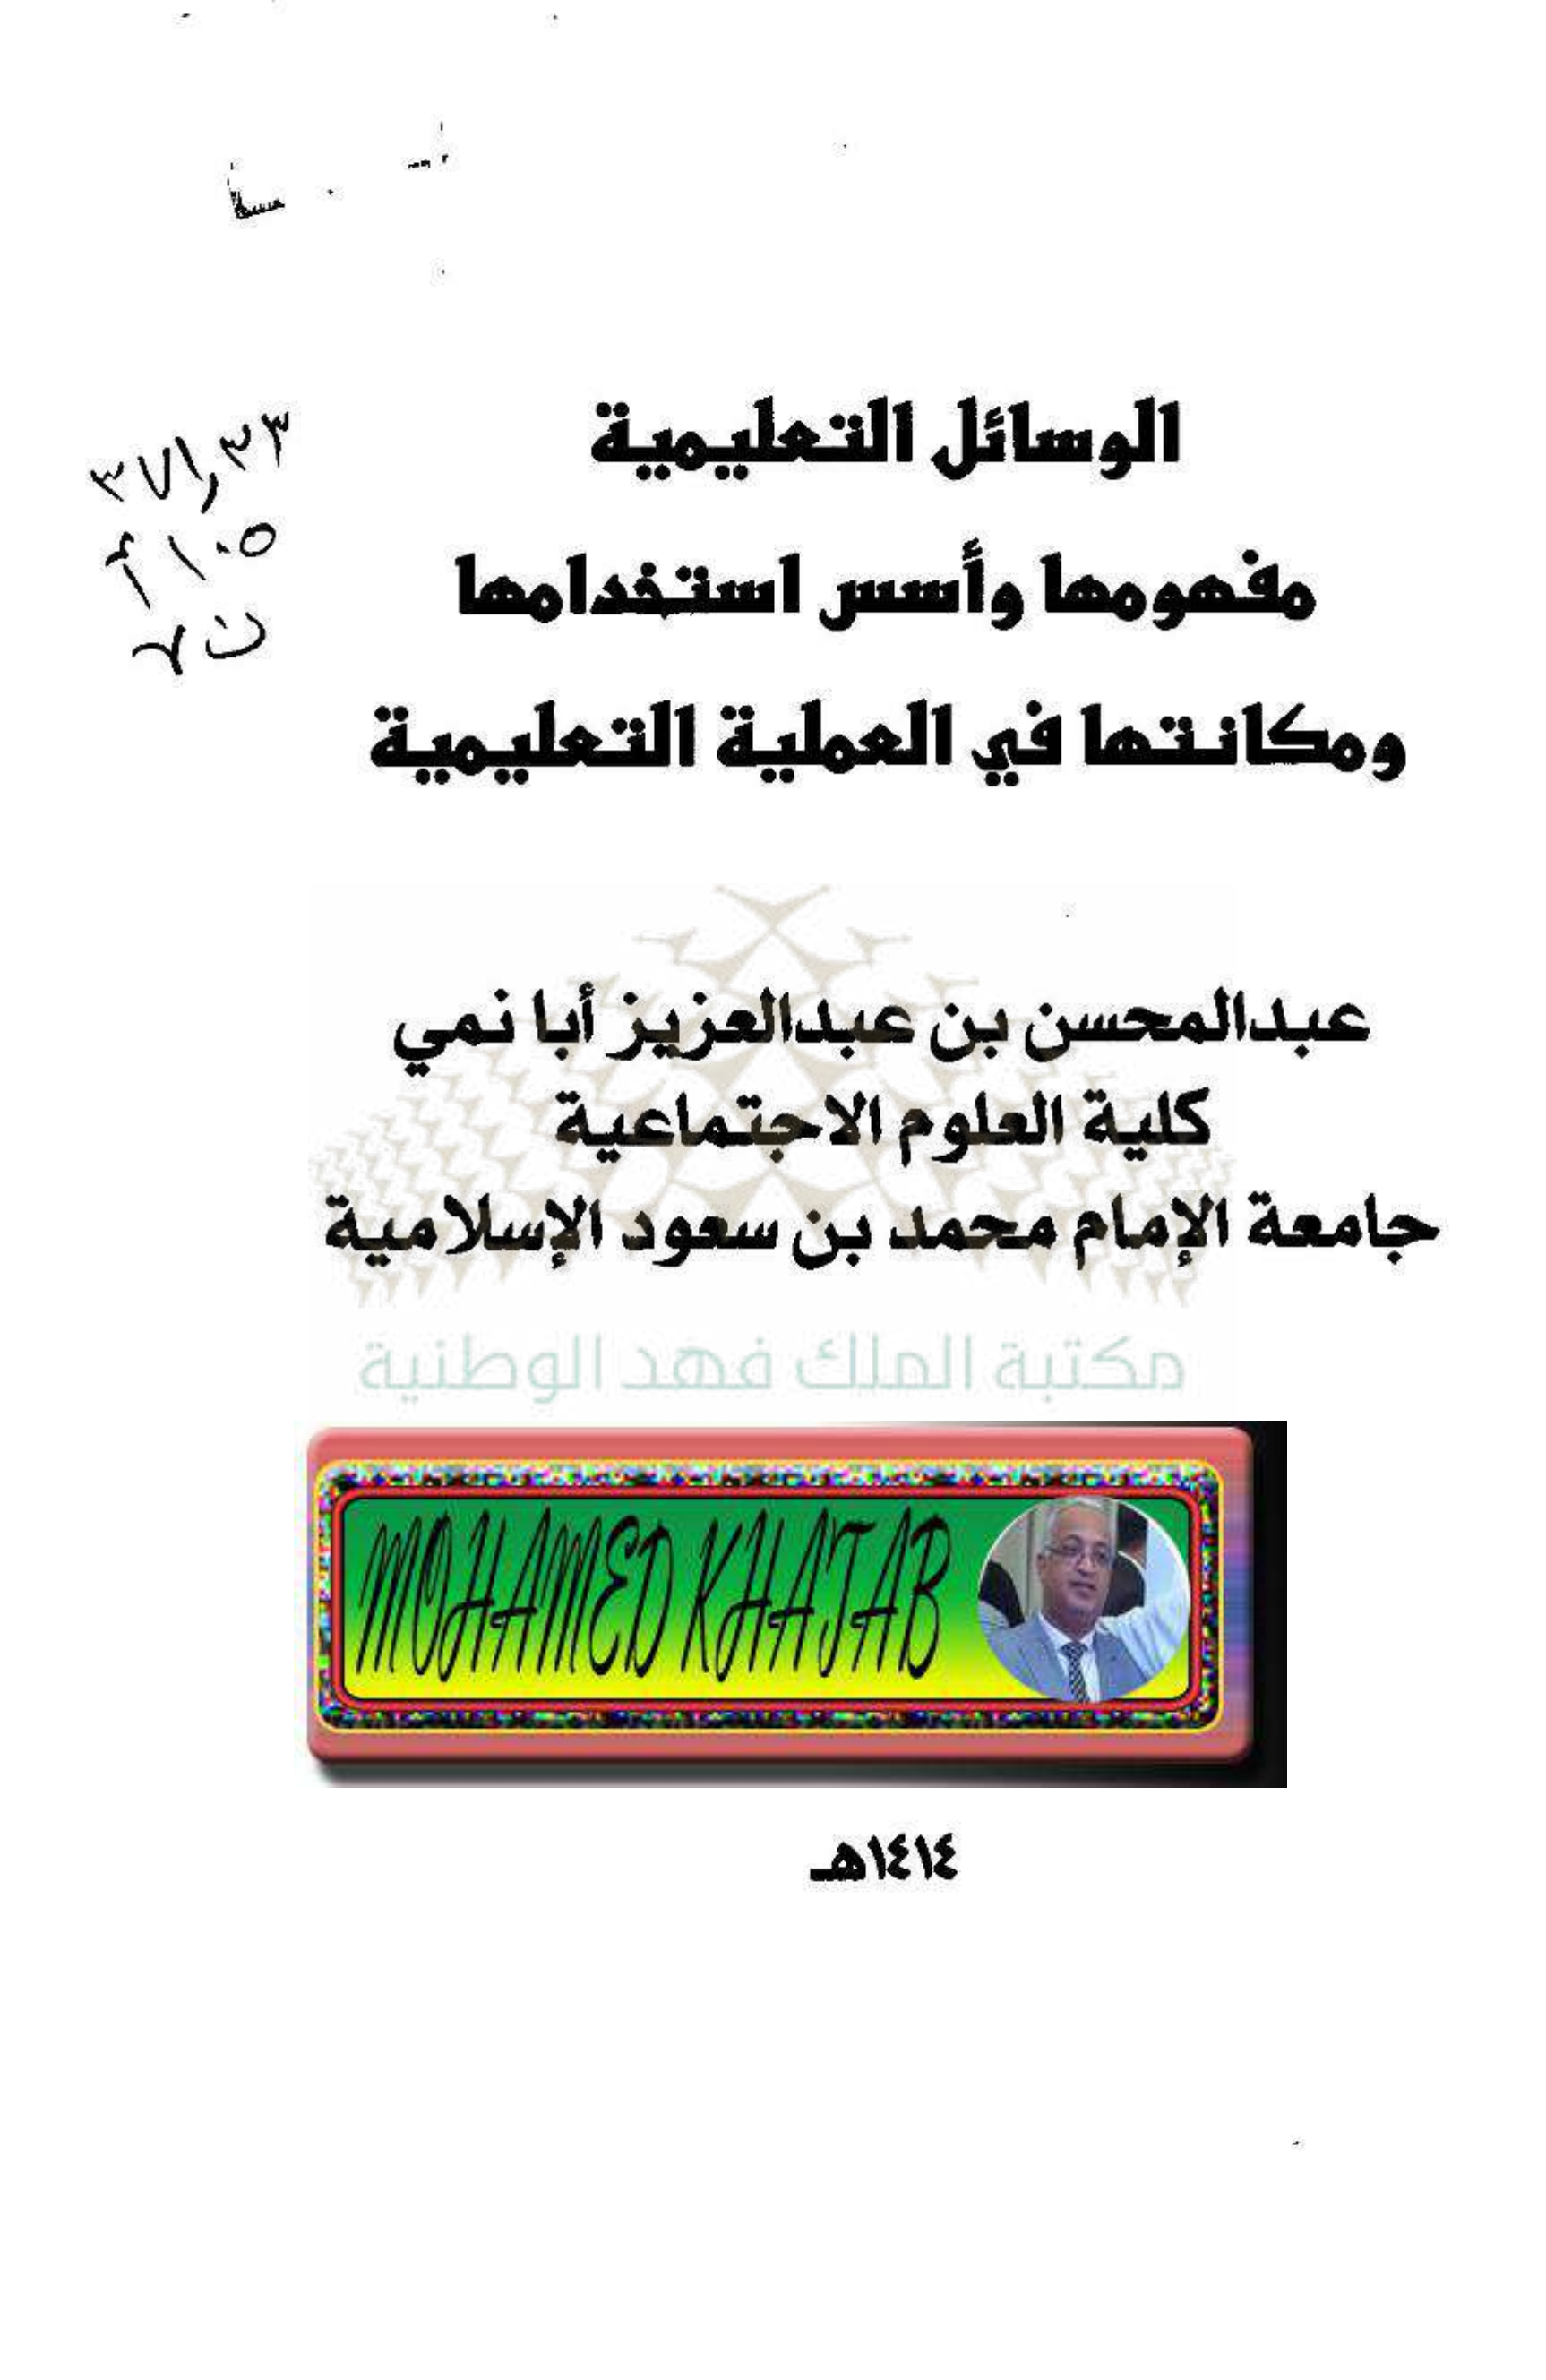 الوسائل التعليمية
مفهومها وأسس استخدامها
ومكانتها في العملية التعليمية
٣٧١,٣٣
١٠٥ أ
عبدالمحسن بن عبدالعزيز أبا نمي
كلية العلوم الاجتماعية
جامعة الإمام محمد بن سعود الإسلامية
مكتبة الملك فهد الوطنية
MOHAMED KHATAB
١٤١٤هـ